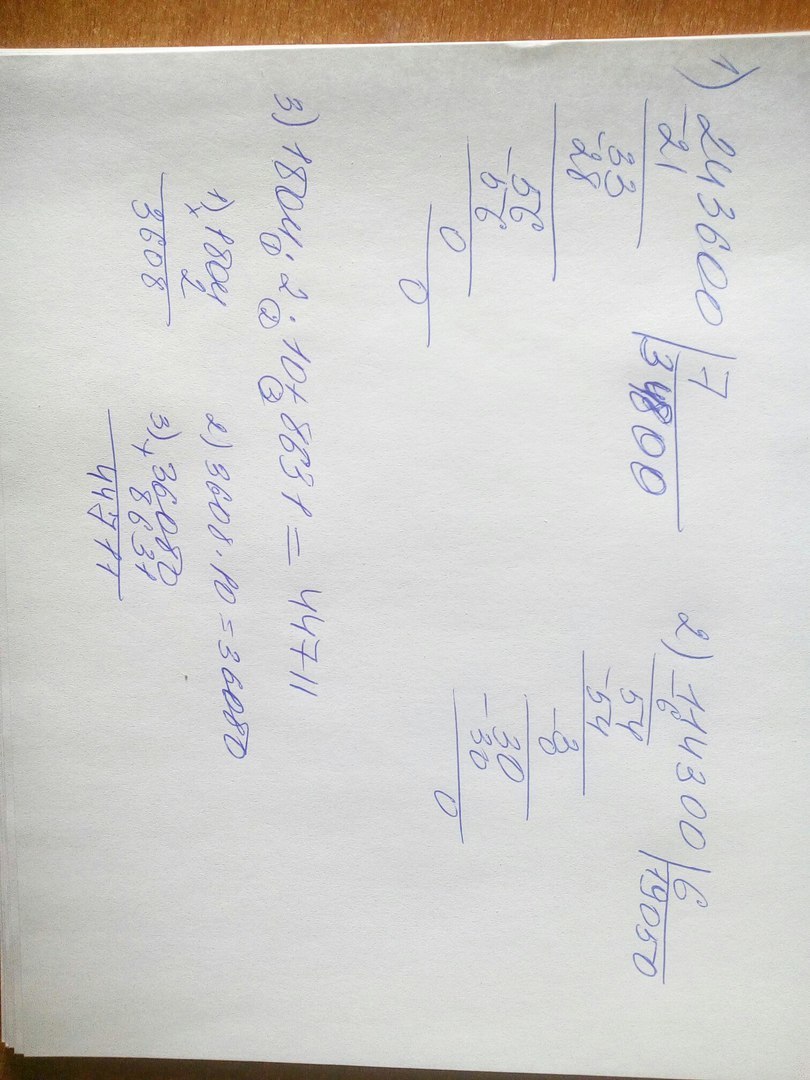 1) 243600 | 7
-21 34800
33
-28
-56
56
0
0
2) 114300 | 6
-6 19050
54
-54
-3
0
-30
30
0
3) 1804 · 2 · 10 + 8631 = 44711
1 2 3
1) × 1804
2
3608
2) 3608 · 10 = 36080
3) + 36080
8631
44711